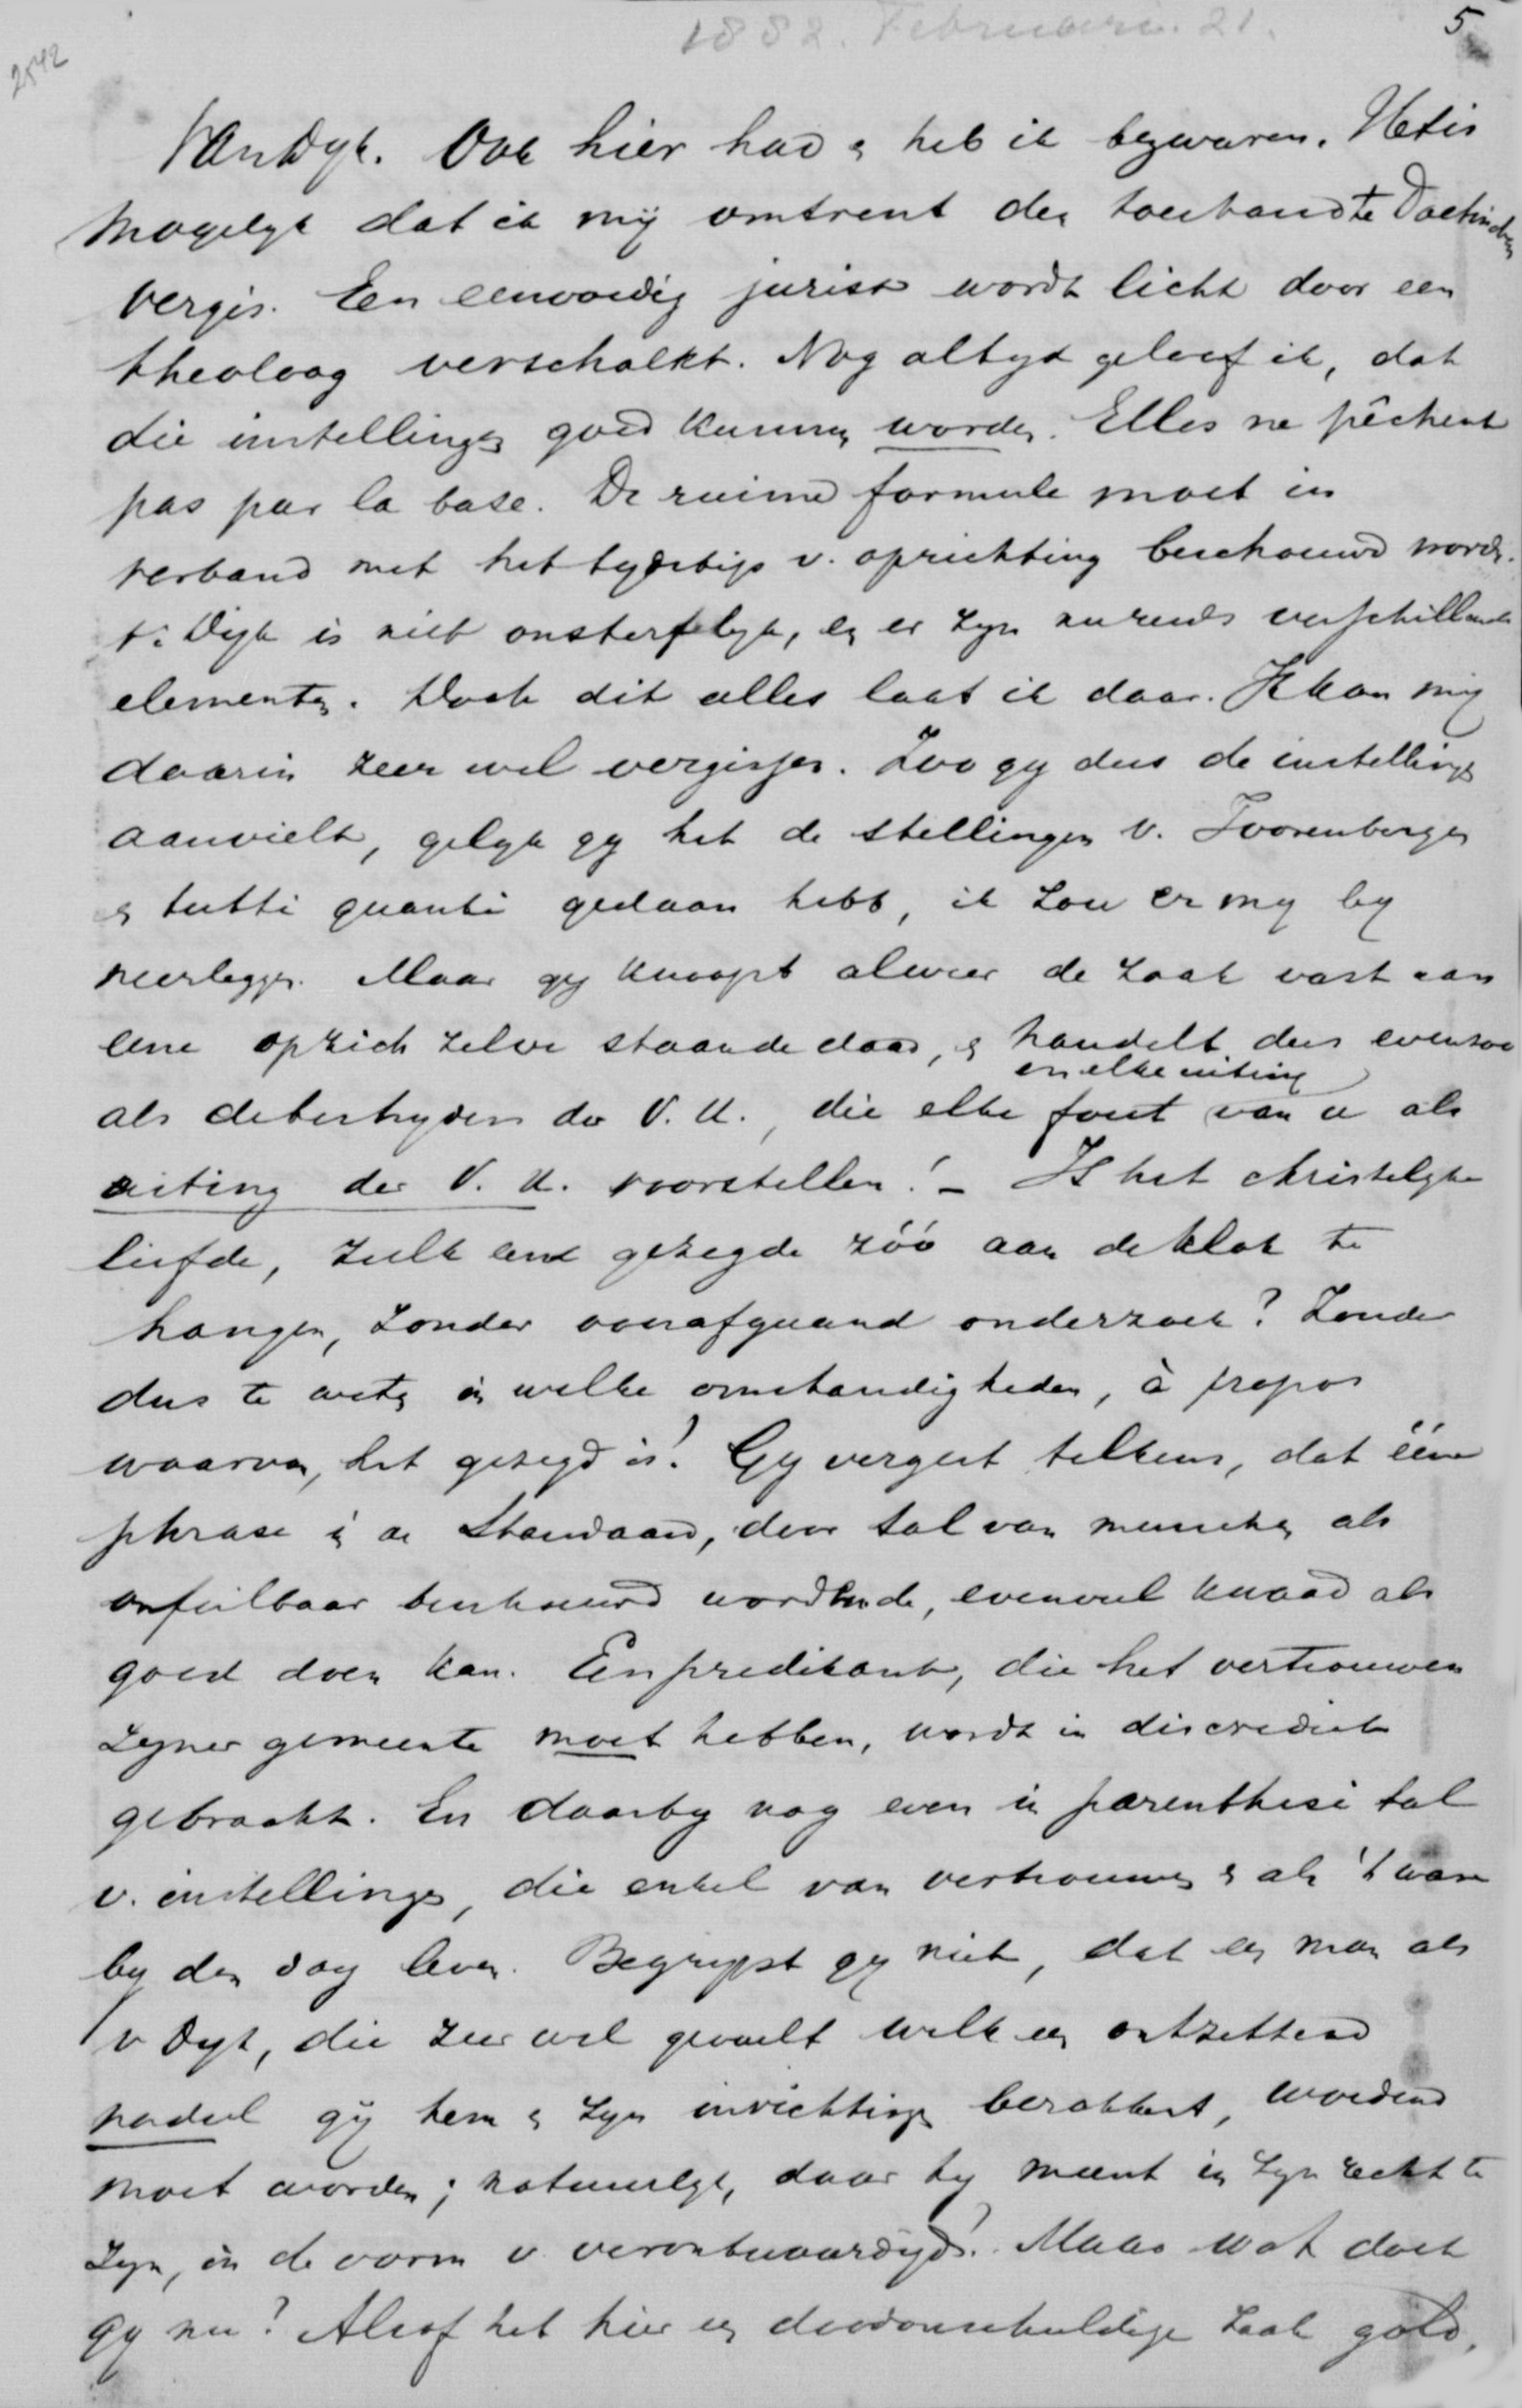 1882. Februari. 21.
5
2542
Van Dyk. Ook hier had & heb ik bezwaren. Het is
mogelyk dat ik my omtrent den toestand te Doetinchem
vergis. Een eenvoudig jurist wordt licht door een
theoloog verschalkt. Nog altyd geloof ik, dat
die instellingen goed kunnen worden. Elles ne pêchent
pas par la base. De ruime formule moet in
verband met het tydstip v. oprichting beschouwd worden.
v. Dyk is niet onsterfelyk, en er zyn nu reeds verschillende
elementen. Doch dit alles laat ik daar. Ik kan my
daarin zeer wel vergissen. Zoo gy dus de instellingen
aanvielt, gelyk gy het de stellingen v. Toorenbergen
& tutti quanti gedaan hebt, ik zou er my by
neerleggen. Maar gy knoopt alweer de zaak vast aan
eene op zich zelve staande daad, & handelt dus evenzoo
en elke uiting
als de bestryders der V. U., die elke fout van u als
uiting der V. U. voorstellen! – Is het christelyke
liefde, zulk een gezegde zóó aan de klok te
hangen, zonder voorafgaand onderzoek? Zonder
dus te weten in welke omstandigheden, à propos
waarvan, het gezegd is! Gy vergeet telkens, dat ééne
phrase in de Standaard, door tal van menschen als
onfeilbaar beschouwd wordende, evenveel kwaad als
goed doen kan. Een predikant, die het vertrouwen
zyner gemeente moet hebben, wordt in discrediet
gebracht. En daarby nog even in parenthesi tal
v. instellingen, die enkel van vertrouwen & als 't ware
by den dag leven. Begrypt gy niet, dat een man als
v Dyk, die zeer wel gevoelt welk een ontzettend
nadeel gy hem & zyn inrichtingen berokkent, woedend
moet worden; natuurlyk, daar hy meent in zyn recht te
zyn, in de vorm v. verontwaardigd! Maar wat doet
gy nu? Alsof het hier een doodonschuldige zaak gold,